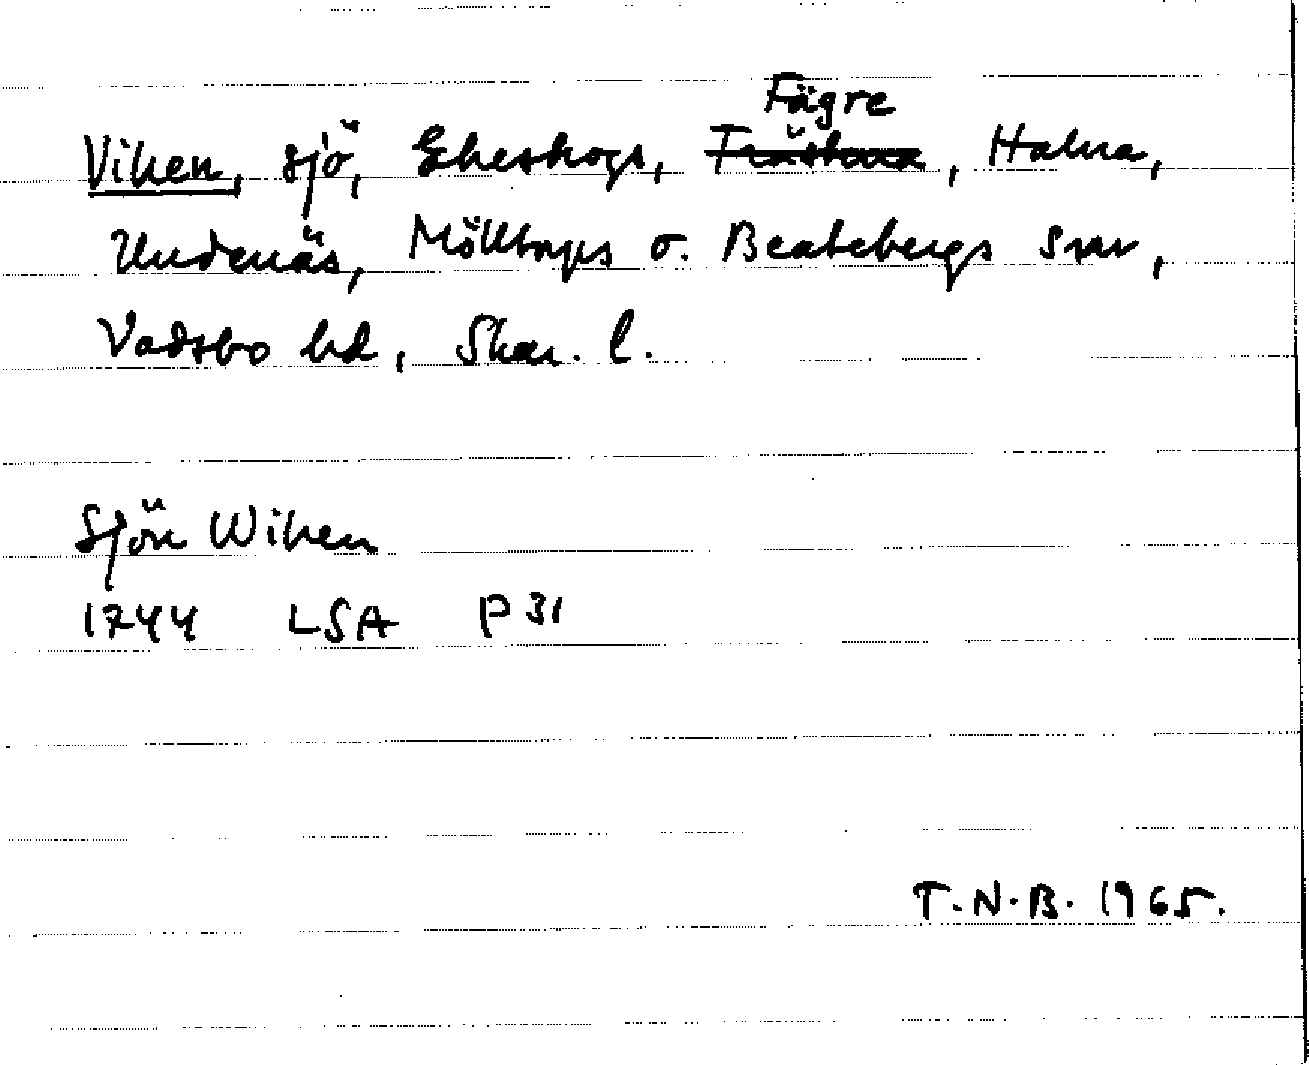 Fägre
Viken, sjö, Ekeskogs, , Halna,
Undenäs, Mölltorps o. Beatebergs snar,
Vadsbo hd, Skar. l.
Sjön Wiken
1744 LSA P 31
T.N.B. 1965.